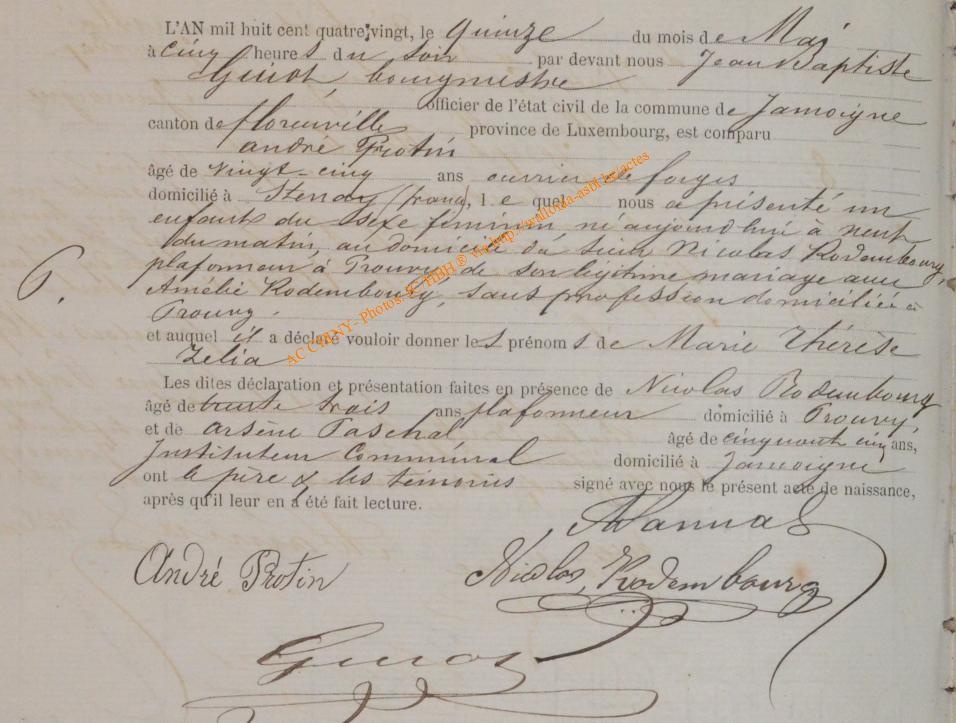 L'AN mil huit cent quatre-vingt, le quinze du mois de Mai
à cinq heures du soir par devant nous Jean Baptiste
Guiot, bourgmestre
officier de l'état civil de la commune de Jamoigne
canton de florenville province de Luxembourg, est comparu
andré Protin
âgé de vingt-cinq ans ouvrier de forges
domicilié à Stenay (france), le quel nous a présenté un
enfant du sexe féminin, né aujourd'hui à neuf
du matin, au domicile du sieur Nicolas Rodembourg,
plafonneur, à Prouvy, de son légitime mariage avec
6.
Amélie Rodembourg, sans profession domiciliée à
Prouvy.
et auquel il a déclaré vouloir donner les prénoms de Marie Thérèse
Zelia
Les dites déclaration et présentation faites en présence de Nicolas Rodembourg
âgé de trente trois ans, plafonneur domicilié à Prouvy,
et de Arsène Paschal, âgé de cinquante cinq ans,
Instituteur Communal domicilié à Jamoigne
ont le père & les témoins signé avec nous le présent acte de naissance,
après qu'il leur en a été fait lecture.
André Protin Nicolas Rodembourg
Guiot
AC CHINY- Photos © HBH ® via http://wallonia-asbl.be/actes